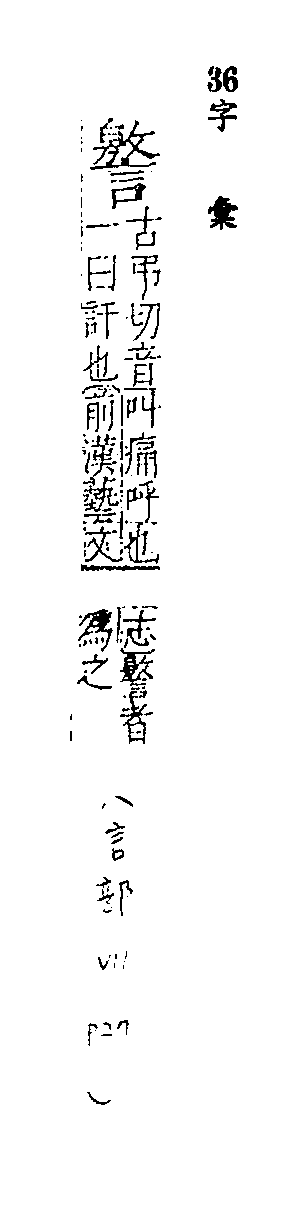 36字彙
警
古弔切音叫痛呼也
一曰訐也前漢藝文
志警者
為之
(言部 VII P27)